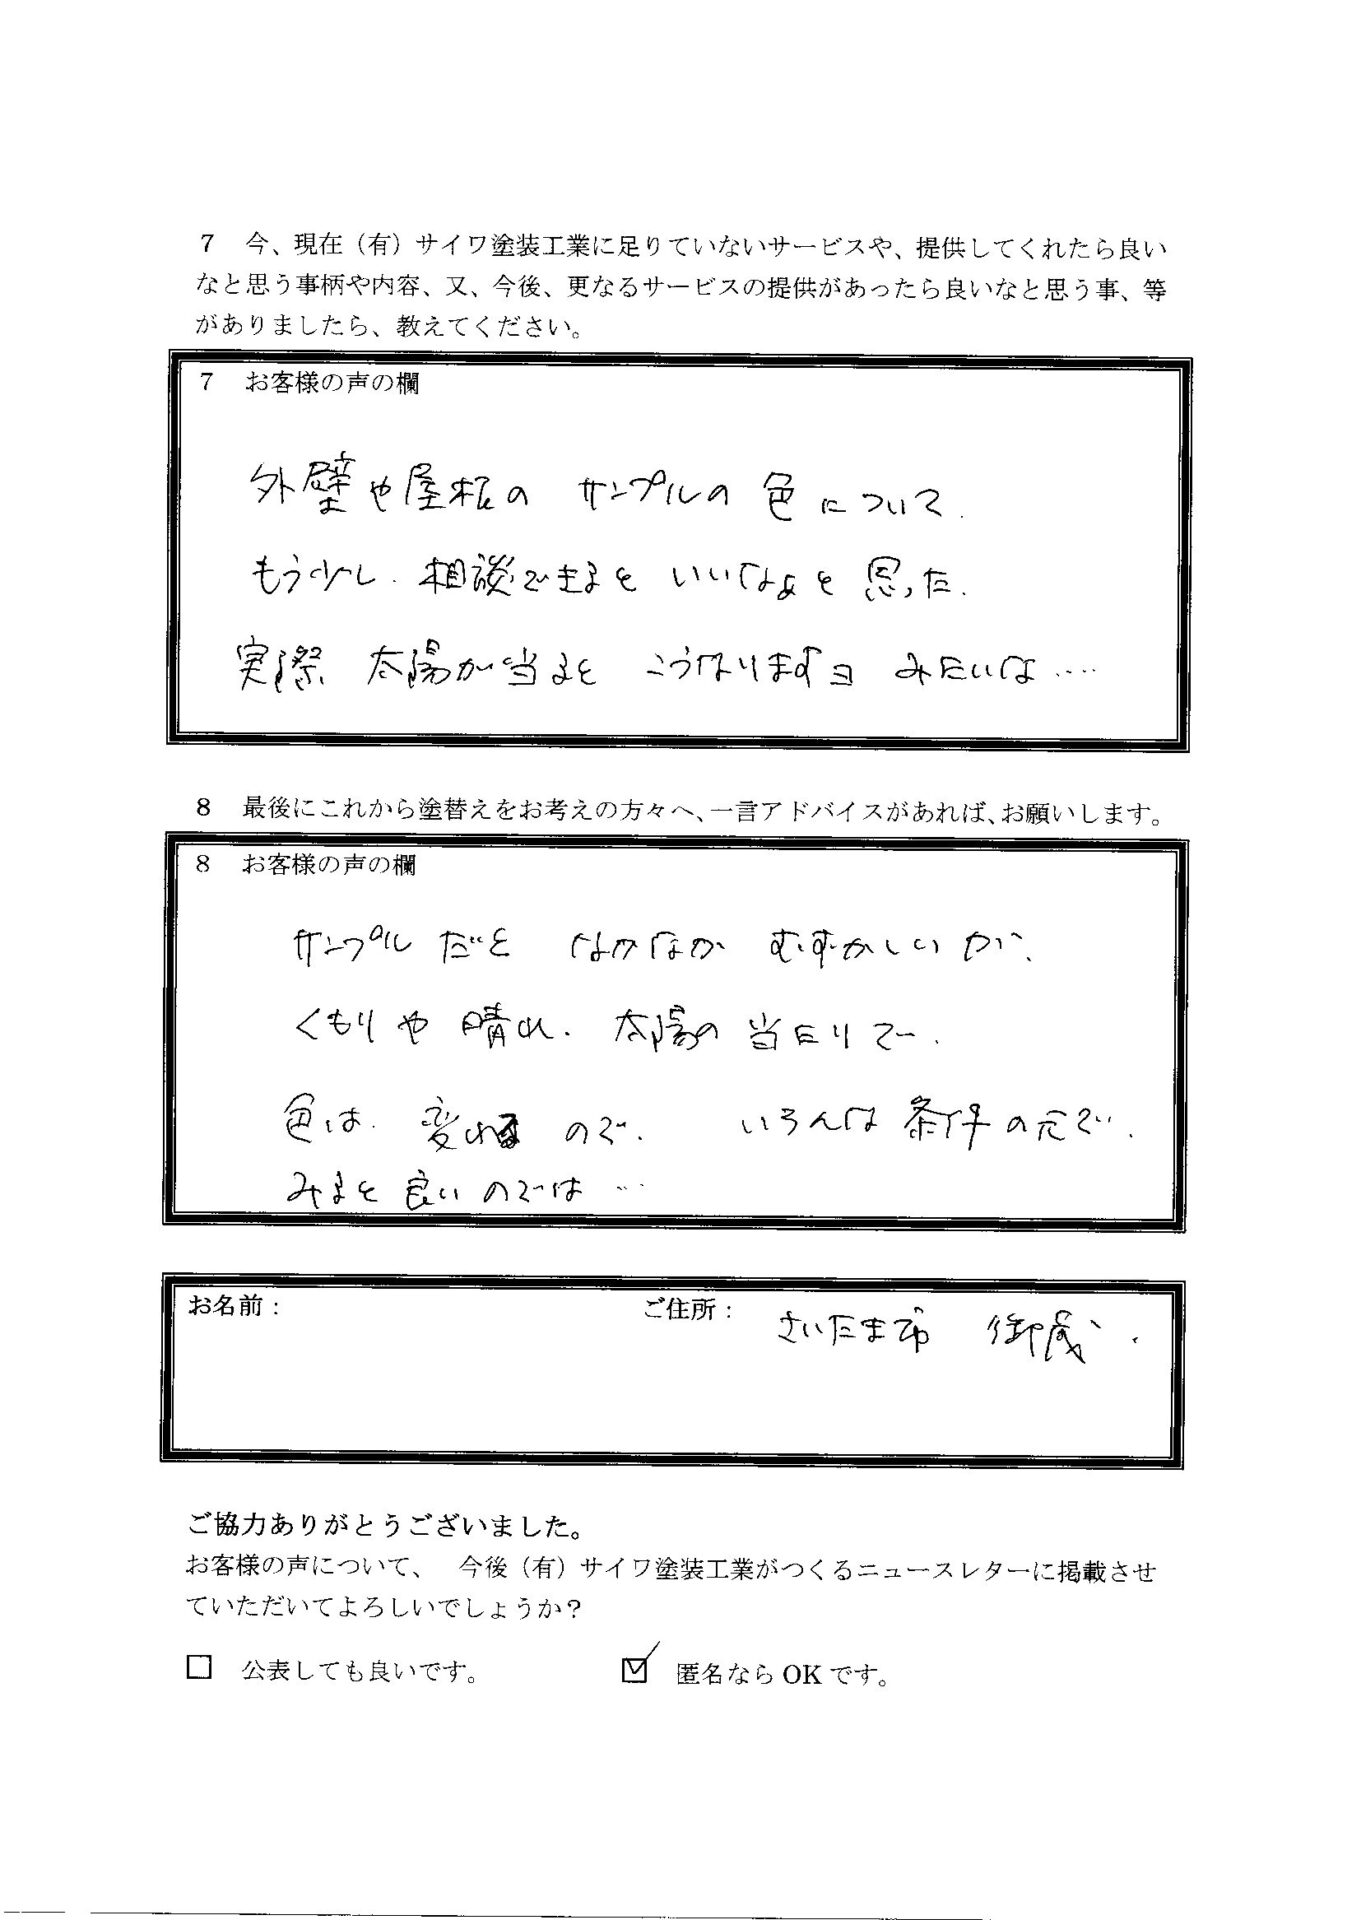 7 今、現在（有）サイワ塗装工業に足りていないサービスや、提供してくれたら良い
なと思う事柄や内容、又、今後、更なるサービスの提供があったら良いなと思う事、等
がありましたら、教えてください。
7 お客様の声の欄
外壁や屋根の サンプルの 色について.
もう少し. 相談できると いいなぁと 思った.
実際 太陽が当ると こうなりますョ みたいな....
8 最後にこれから塗替えをお考えの方々へ、一言アドバイスがあれば、お願いします。
8 お客様の声の欄
サンプル だと なかなか むずかしい が、
くもり や 晴れ. 太陽の 当たりで.
色は. 変わる ので. いろんな 条件 の元で.
みると 良い のでは …
お名前： ご住所： さいたま市 御蔵
ご協力ありがとうございました。
お客様の声について、 今後（有）サイワ塗装工業がつくるニュースレターに掲載させ
ていただいてよろしいでしょうか？
□ 公表しても良いです。 ☑ 匿名なら OK です。